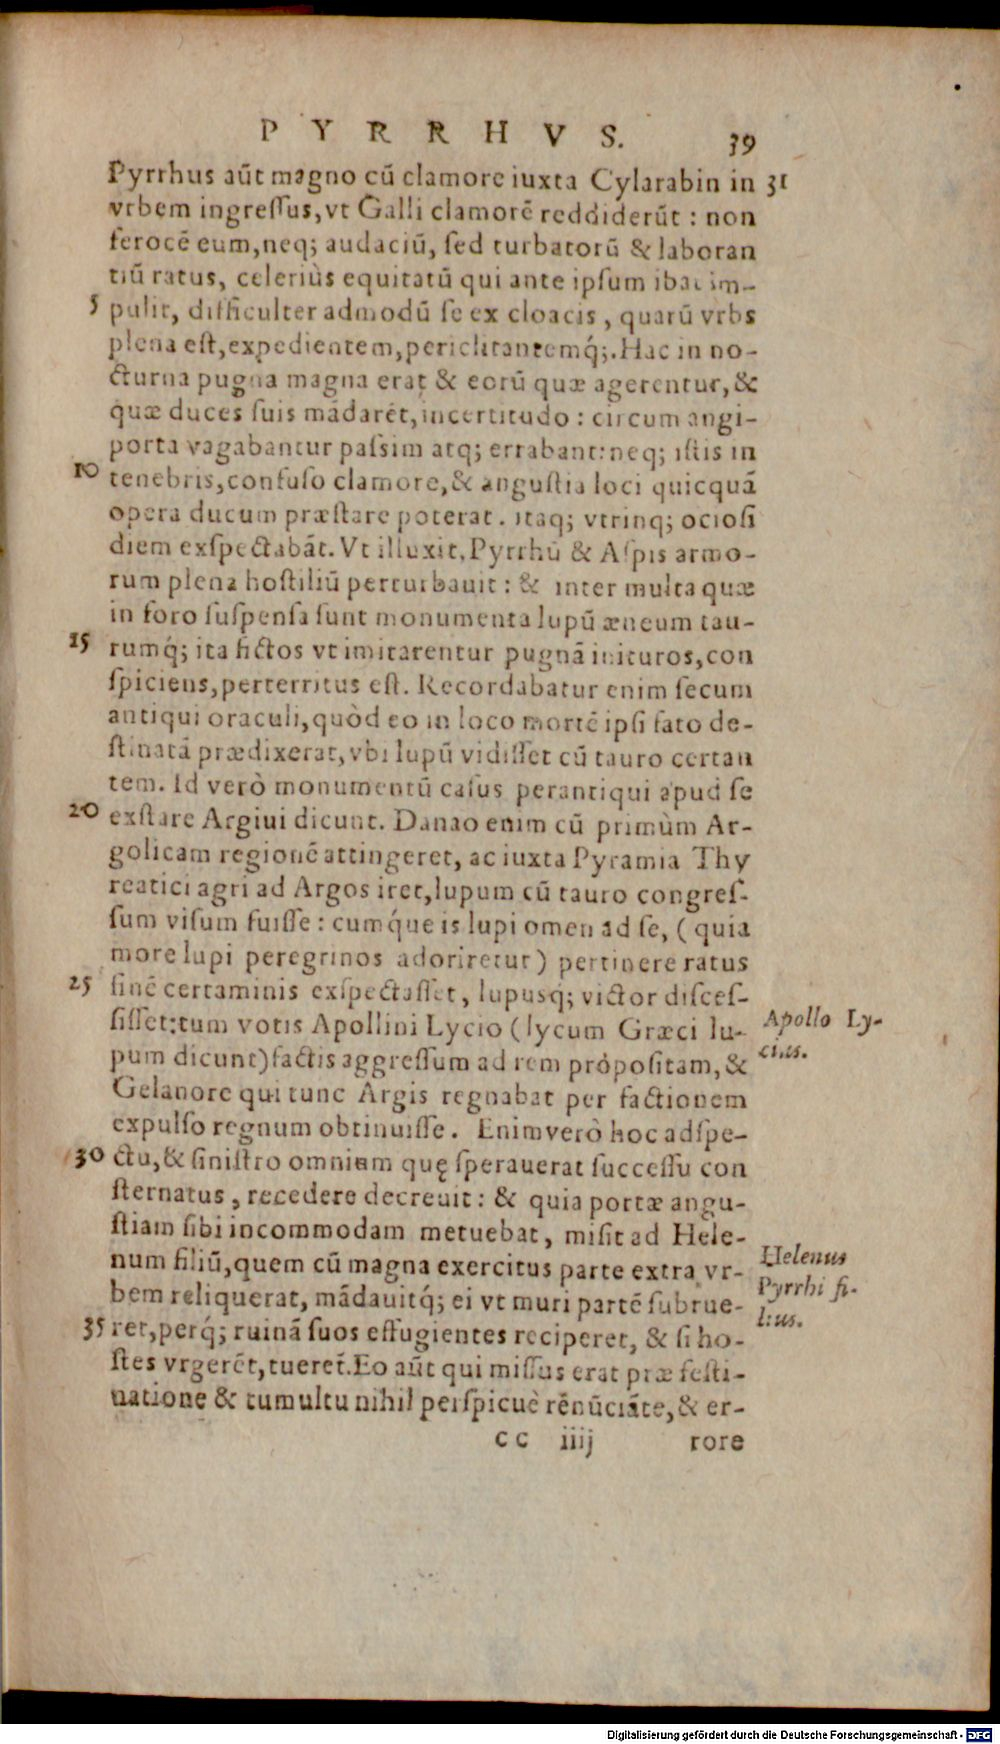 PYRRHVS. 39
Pyrrhus aūt magno cū clamore iuxta Cylarabin in 31
vrbem ingreſſus, vt Galli clamorē reddiderūt : non
ferocē eum, neq; audaciū, ſed turbatorū & laboran
tiū ratus, celeriùs equitatū qui ante ipſum ibat im-
5 pulit, difficulter admodū ſe ex cloacis, quarū vrbs
plena eſt, expedientem, periclitantemq́;. Hac in no-
cturna pugna magna erat & eorū quæ agerentur, &
quæ duces ſuis mādarēt, incertitudo : circum angi-
porta vagabantur paſsim atq; errabant: neq; iſtis in
10 tenebris, confuſo clamore, & anguſtia loci quicquā
opera ducum præſtare poterat. itaq; vtrinq; ocioſi
diem exſpectabāt. Vt illuxit, Pyrrhū & Aſpis armo-
rum plena hoſtiliū perturbauit : & inter multa quæ
in foro ſuſpenſa ſunt monumenta lupū æneum tau-
15 rumq́; ita fictos vt imitarentur pugnā inituros, con
ſpiciens, perterritus eſt. Recordabatur enim ſecum
antiqui oraculi, quòd eo in loco mortē ipſi fato de-
ſtinatā prædixerat, vbi lupū vidiſſet cū tauro certan
tem. Id verò monumentū caſus perantiqui apud ſe
20 exſtare Argiui dicunt. Danao enim cū primùm Ar-
golicam regionē attingeret, ac iuxta Pyramia Thy
reatici agri ad Argos iret, lupum cū tauro congreſ-
ſum viſum fuiſſe : cumq́ue is lupi omen ad ſe, (quia
more lupi peregrinos adoriretur) pertinere ratus
25 finē certaminis exſpectaſſet, lupusq; victor diſceſ-
ſiſſet: tum votis Apollini Lycio (lycum Græci lu-
pum dicunt) factis aggreſſum ad rem propoſitam, &
Gelanore qui tunc Argis regnabat per factionem
expulſo regnum obtinuiſſe. Enimverò hoc adſpe-
30 ctu, & ſiniſtro omnium quę ſperauerat ſucceſſu con
ſternatus, recedere decreuit : & quia portæ angu-
ſtiam ſibi incommodam metuebat, miſit ad Hele-
num filiū, quem cū magna exercitus parte extra vr-
bem reliquerat, mādauitq́; ei vt muri partē ſubrue-
35 ret, perq́; ruinā ſuos effugientes reciperet, & ſi ho-
ſtes vrgerēt, tueret̄. Eo aūt qui miſſus erat præ feſti-
natione & tumultu nihil perſpicuè rēnūciāte, & er-
cc iiij rore
Apollo Ly-
cius.
Helenus
Pyrrhi fi-
lius.
Digitalisierung gefördert durch die Deutsche Forschungsgemeinschaft - DFG